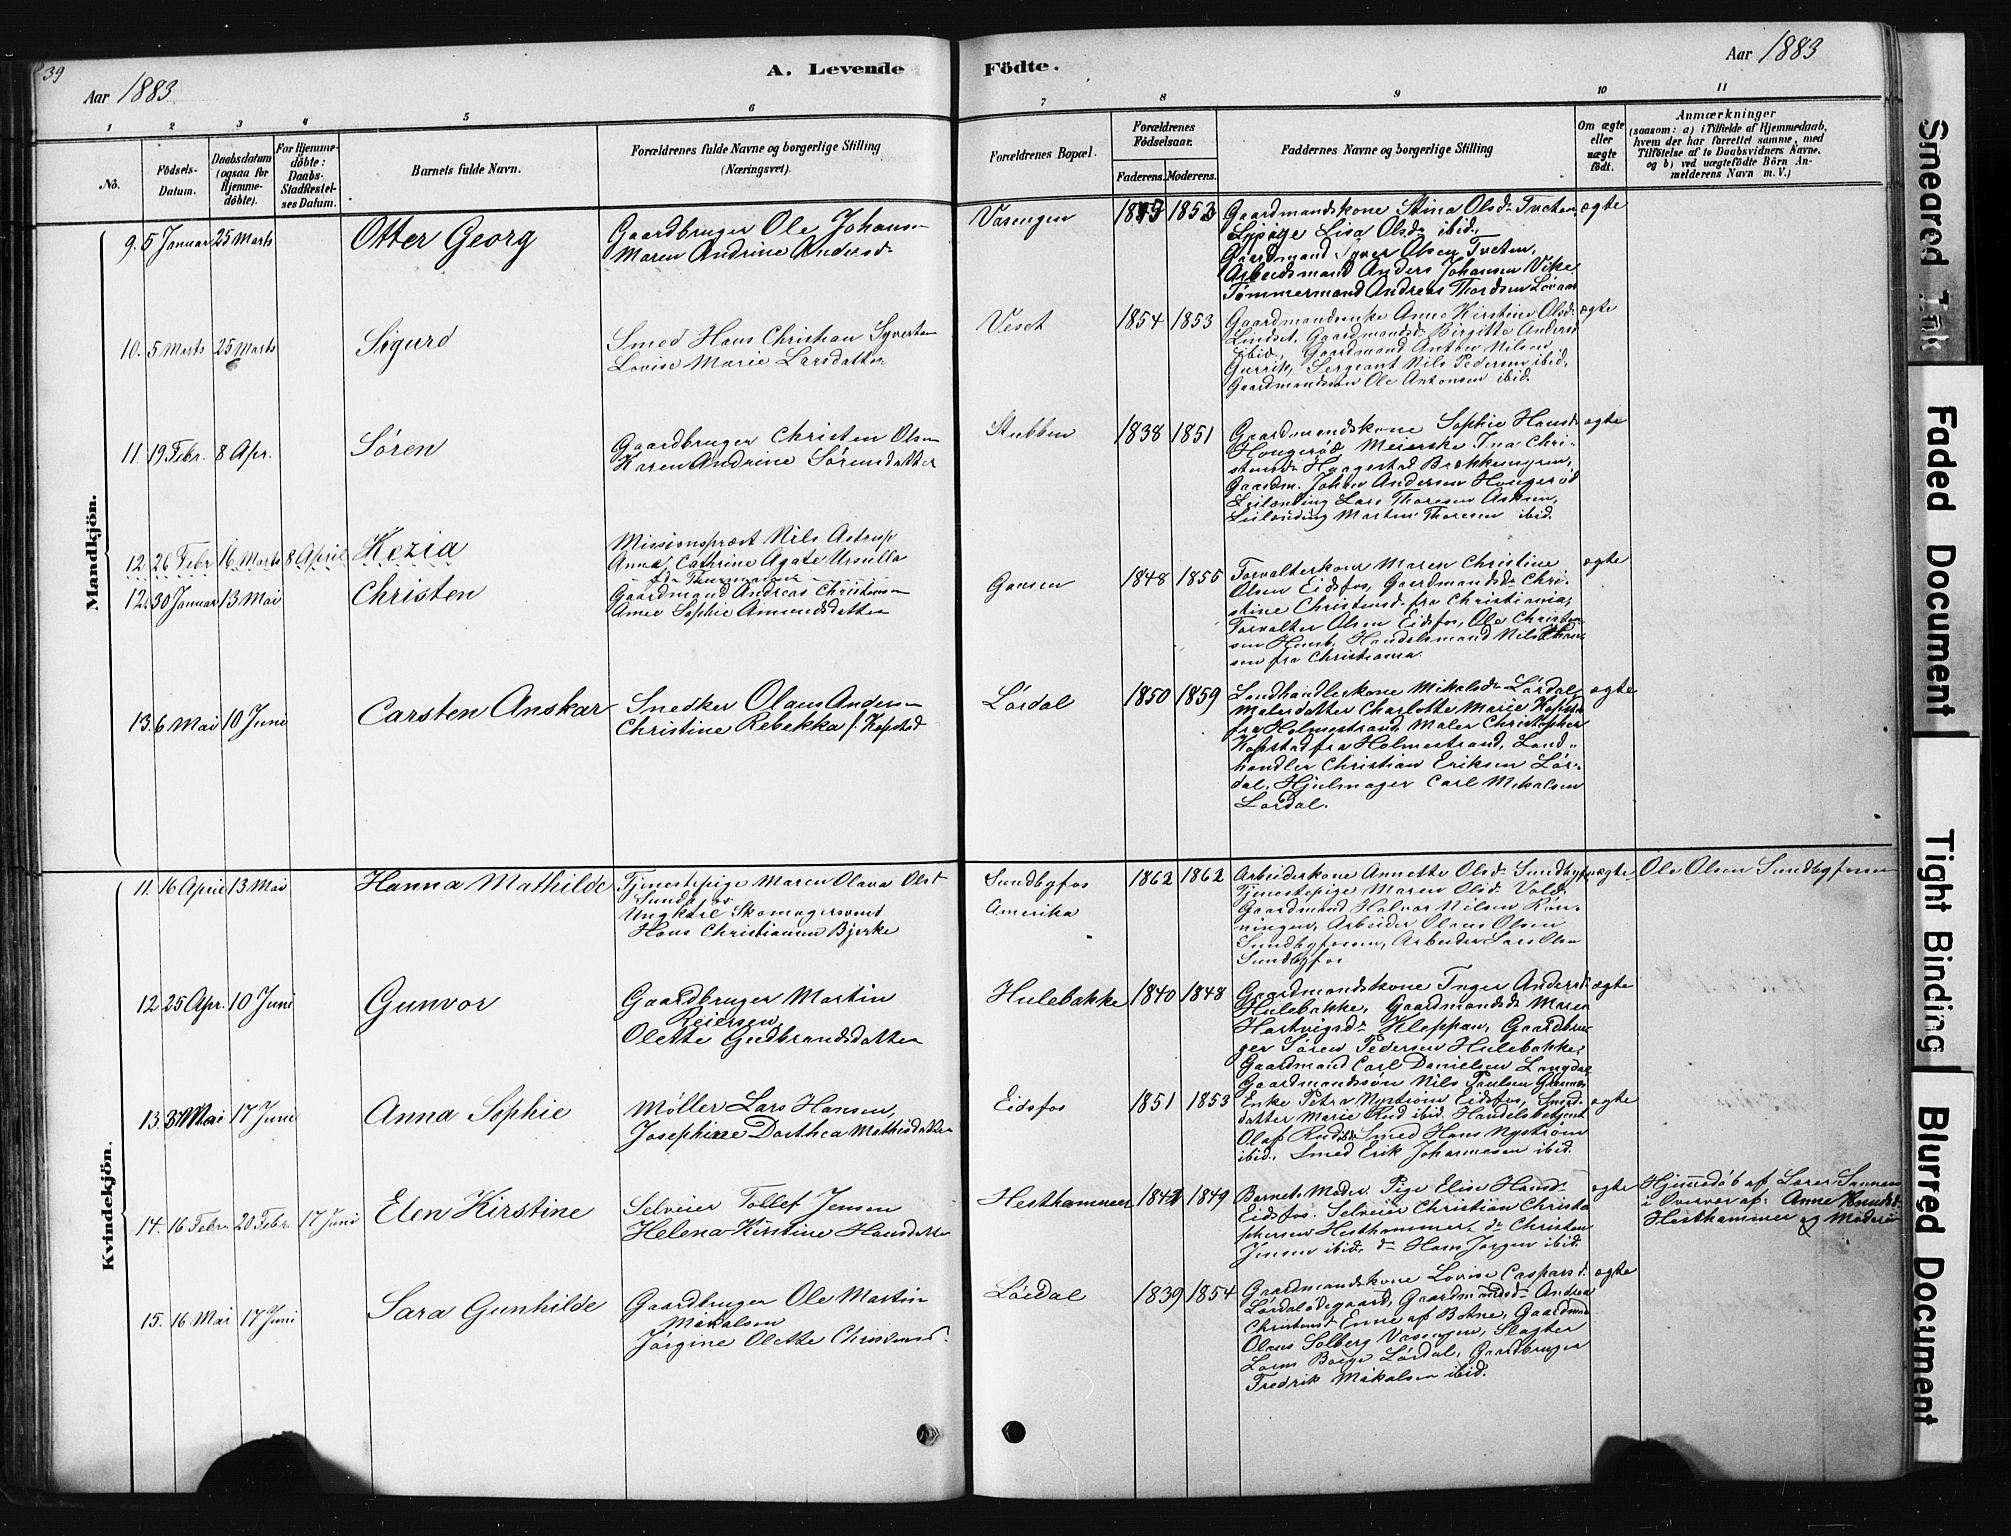 39
Aar 1883
A. Levende
Födte.
Aar 1883
1 2 3 4 5 6 7 8 9 10 11
No.
Födsels-
Datum.
Daabsdatum
(ogsaa for
Hjemme-
döbte).
For Hjemme-
döbte:
Daabs-
Stadfæstel-
ses Datum.
Barnets fulde Navn.
Forældrenes fulde Navne og borgerlige Stilling
(Næringsvei).
Forældrenes Bopæl.
Forældrenes
Födselsaar.
Faderens. Moderens.
Faddernes Navne og borgerlige Stilling
Om ægte
eller
uægte
födt.
Anmærkninger
(saasom: a) i Tilfælde af Hjemmedaab,
hvem der har forrettet samme, med
Tilföielse af to Daabsvidners Navne,
og b) ved uægtefödte Börn An-
melderens Navn m. V.)
Mandkjön.
9. 5 Januar 25 Marts
Otter Georg
Gaardbruger Ole Johans
Maren Andrine Andersd
Vasengen
1853
Gaardmandskone Stina Olsd. Tveten,
Lisa Olsd. ibid.
Gaardmand Syver Olsen Tveten,
Arbeidsmand Anders Johansen Vike
Tømmermand Andreas Thordsen
ægte
10. 5 Marts 25 Marts
Sigurd
Smed Hans Christian Syvertsen
Lovise Marie Larsdatter
Veset
1854 1853
Gaardmandsenke Anne Kirstine Olsd.
Lindset, Gaardmandsd. Birgitte Andersd
ibid., Gaardmand Anton Nilsen
Sergeant Nils Pedersen ibid.
Gaardmandssøn Ole Antonsen ibid.
ægte
11. 19 Febr. 8 Apr.
Søren
Gaardbruger Christen Olsen
Karen Andrine Sørensdatter
Stubben
1838 1851
Gaardmandskone Sophie Hansd
Hougerød Meierske Ina Chri-
stensd. Haagestad
Gaardm. Johan Andersen Hougerød
Leilending Lars Thoresen Asknen,
Leilending Martin Thoresen ibid.
ægte
12. 26 Febr 16 Marts 8 April
Kezia
Missionspræst Nils Astrup
Anna Cathrine Agate Ursulla
12. 30 Januar 13 Mai
Christen
Gaardmand Andreas Christensen
Anne Sophie Amundsdatter
Gansen
1848 1855
Forvalterkone Maren Christine
Olsen Eidsfos, Gaardmandsd. Chri-
stine Christensd. fra Christiania,
Forvalter Olsen Eidsfos, Ole Christen
sen Handelsmand Nils
sen fra Christiania
ægte
13. 6 Mai 10 Juni
Carsten Anskar
Snedker Olaus Andersen
Christine Rebekka f. Kopstad
Lørdal
1850 1859
Landhandlerkone Mikalsd. Lørdal,
Malerdatter Charlotte Marie Kopstad
fra Holmestrand, Maler Christopher
Kopstad fra Holmestrand, Land-
handler Christian Eriksen Lør-
dal, Hjulmager Carl Mikalsen
Lørdal.
ægte
Kvindekjön.
11. 16 April 13 Mai
Hanna Mathilde
Tjenestepige Maren Olava Olsd
Sundbyfos
Ungkarl Skomagersvend
Hans Christiansen Bjerke
Sundbyfos
Amerika
1862 1862
Arbeiderkone Annette Olsd. Sundbyf
Tjenestepige Maren Olsd. Vold,
Gaardmand Halvor Nilsen Røn-
ningen, Arbeider Olaus Olsen
Sundbyfossen, Arbeider Lars Olsen
Sundbyfos
uægte
Ole Olsen Sundbyfossen
12. 25 Apr. 10 Juni
Gunvor
Gaardbruger Martin
Reiersen,
Olette Gudbrandsdatter
Hulebakke
1840 1848
Gaardmandskone Inger Andersd
Hulebakke, Gaardmandsd. Maren
Hartvigsd. Kleppan, Gaardbru
ger Søren Pedersen Hulebakke,
Gaardmand Carl Danielsen Langdal
Gaardmandssøn Nils Paulsen
ægte
13. 3 Mai 17 Juni
Anna Sophie
Møller Lars Hansen,
Josephine Dorthea Mathisdatter
Eidsfos
1851 1853
Enke Petra Nystrøm Eidsfos, Smed-
datter Marie Rud ibid. Handelsbetjent
Olaf Rud ibid. Smed Hans Nystrøm
ibid. Smed Erik Johannesen ibid.
ægte
14. 16 Febr 20 Febr. 17 Juni
Elen Kirstine
Selveier Tollef Jensen
Helena Kirstine Hansdatter
Hesthammer
1849
Barnets Moder. Pige Elise Hansd.
Eidsfos. Selveier Christian Christo
phersen Hesthammer, d. Christen
Jensen ibid, d. Hans Jørgen ibid.
ægte
Hjemmedøbt af Lærer
i Overvær af: Anne Knudsd.
Hesthammer og Moderen
15. 16 Mai 17 Juni
Sara Gunhilde
Gaardbruger Ole Martin
Mikalsen
Jørgine Olette Christensd.
Lørdal
1839 1854
Gaardmandskone Lovise Caspersd.
Lørdalødegaard, Gaardmandsd. Andrea
Christensd. Enne af Botne, Gaardmd
Olaus Solberg Vasengen, Slagter
Lørdal, Gaardbruger
Fredrik Mikalsen ibid.
ægte
Smeared Ink
Faded Document
Tight Binding
Blurred Document